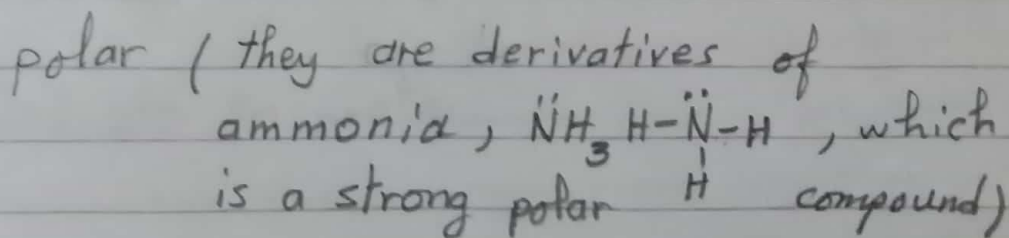 polar ( they are derivatives of
ammonia, N̈H₃ H-N̈-H , which
is a strong polar H compound)